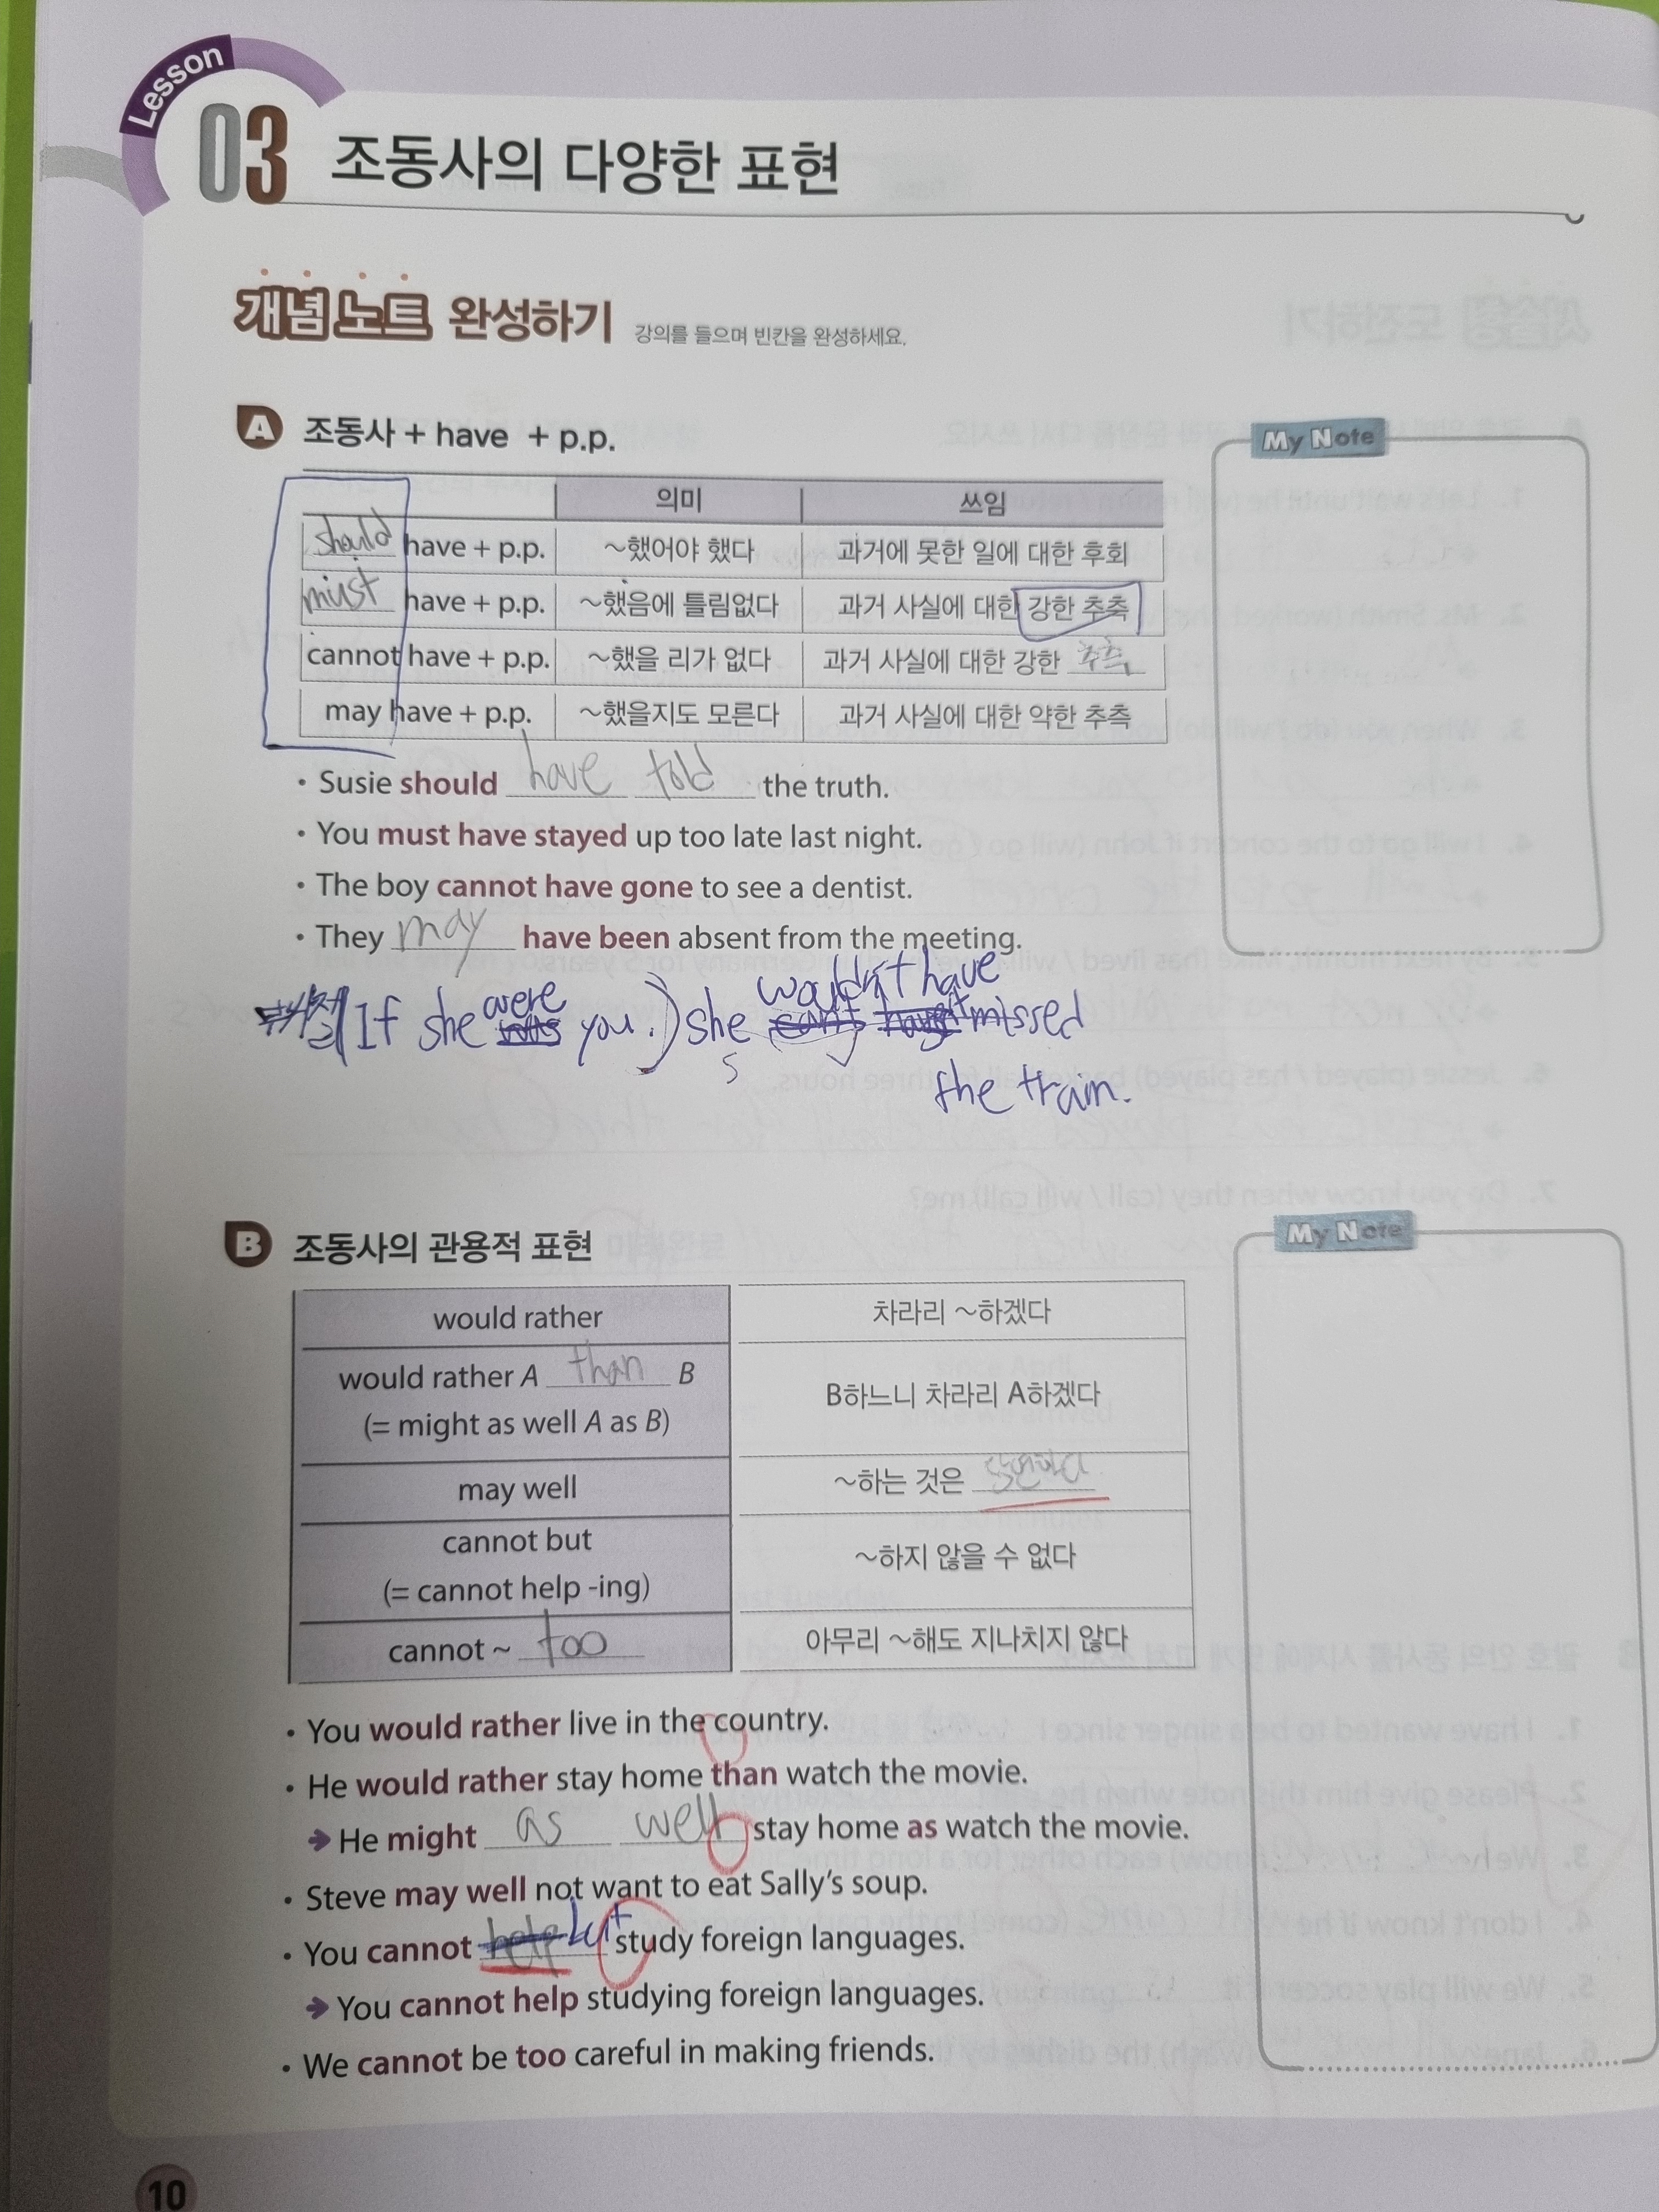 Lesson
03 조동사의 다양한 표현
개념노트 완성하기 강의를 들으며 빈칸을 완성하세요.
A 조동사 + have + p.p.
My Note
의미 쓰임
should have + p.p. ~했어야 했다 과거에 못한 일에 대한 후회
must have + p.p. ~했음에 틀림없다 과거 사실에 대한 강한 추측
cannot have + p.p. ~했을 리가 없다 과거 사실에 대한 강한 추측
may have + p.p. ~했을지도 모른다 과거 사실에 대한 약한 추측
• Susie should have told the truth.
• You must have stayed up too late last night.
• The boy cannot have gone to see a dentist.
• They may have been absent from the meeting.
If she were you.) she wouldn't have missed
the train.
B 조동사의 관용적 표현
My Note
would rather 차라리 ~하겠다
would rather A than B
(= might as well A as B) B하느니 차라리 A하겠다
may well ~하는 것은 당연하다
cannot but
(= cannot help -ing) ~하지 않을 수 없다
cannot ~ too 아무리 ~해도 지나치지 않다
• You would rather live in the country.
• He would rather stay home than watch the movie.
➔ He might as well stay home as watch the movie.
• Steve may well not want to eat Sally's soup.
• You cannot help but study foreign languages.
➔ You cannot help studying foreign languages.
• We cannot be too careful in making friends.
10